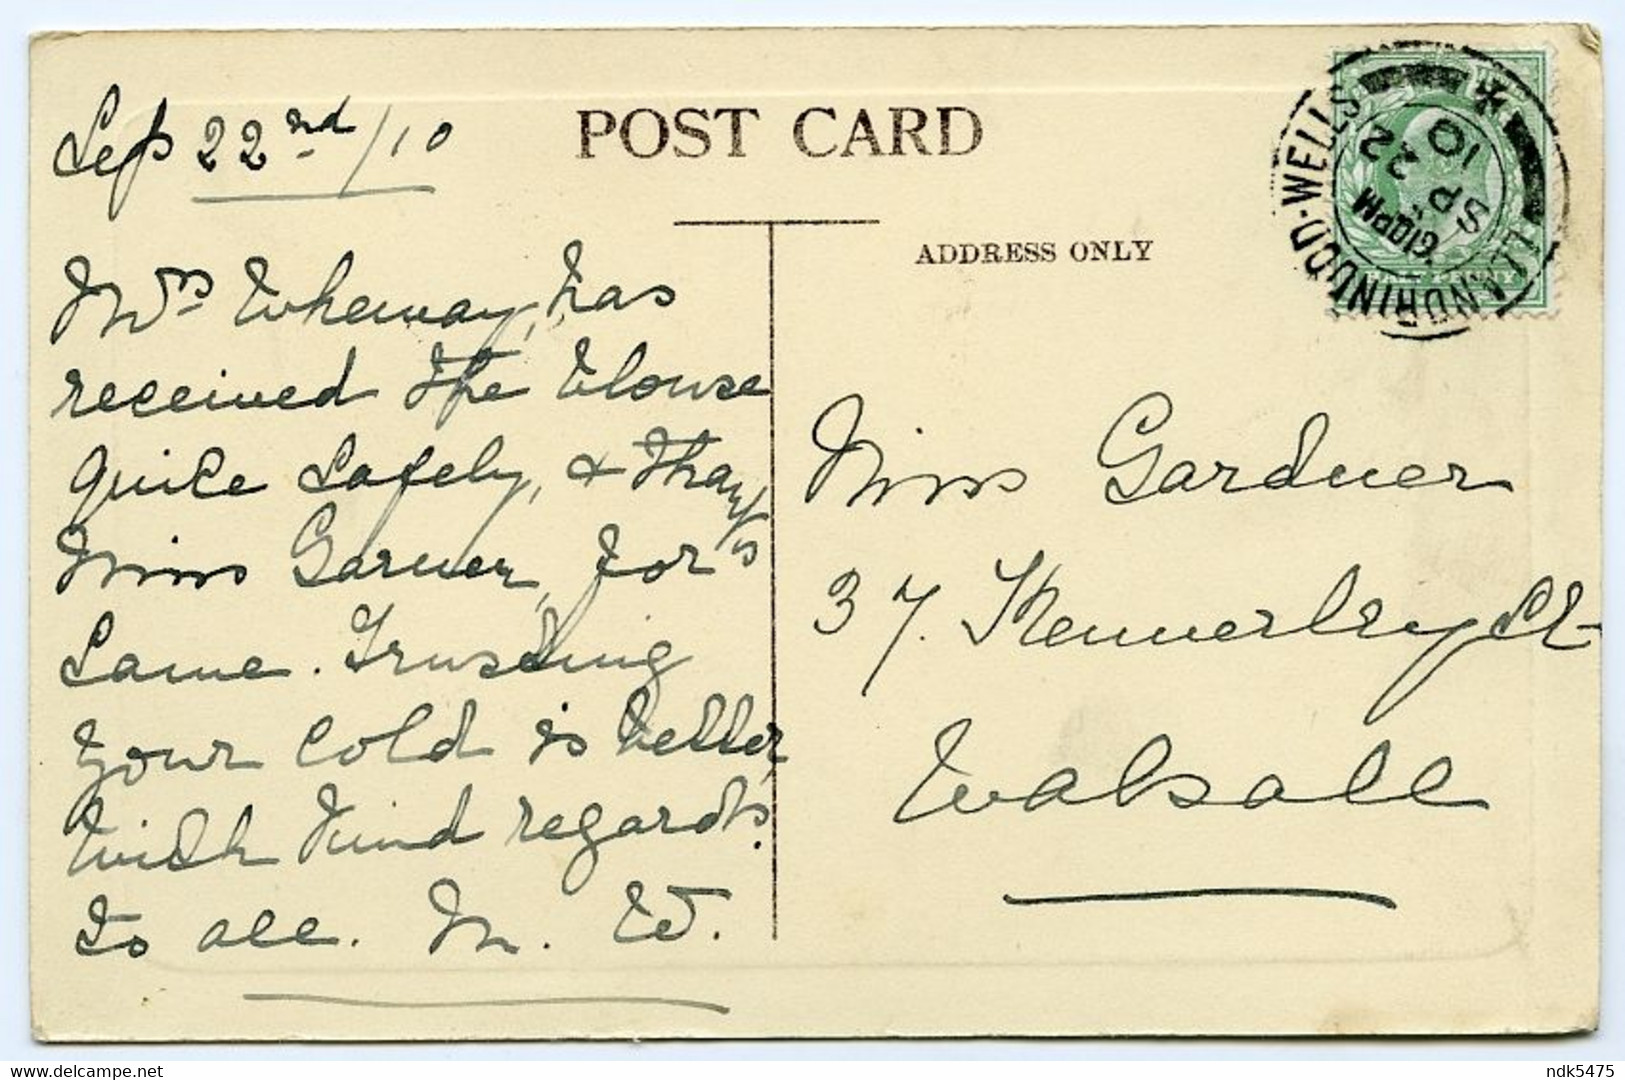 Sep 22nd/10
POST CARD
ADDRESS ONLY
LLANDRINDOD-WELLS
6 10PM
SP 22
10
HALF PENNY
Mrs Wheway, has
received the blouse
quite safely, & thank's
Miss Garner, for
same. Trusting
your cold is better,
with kind regards.
to all. M. W.
Miss Gardner
37. Kennerley St
Walsall
ndk5475